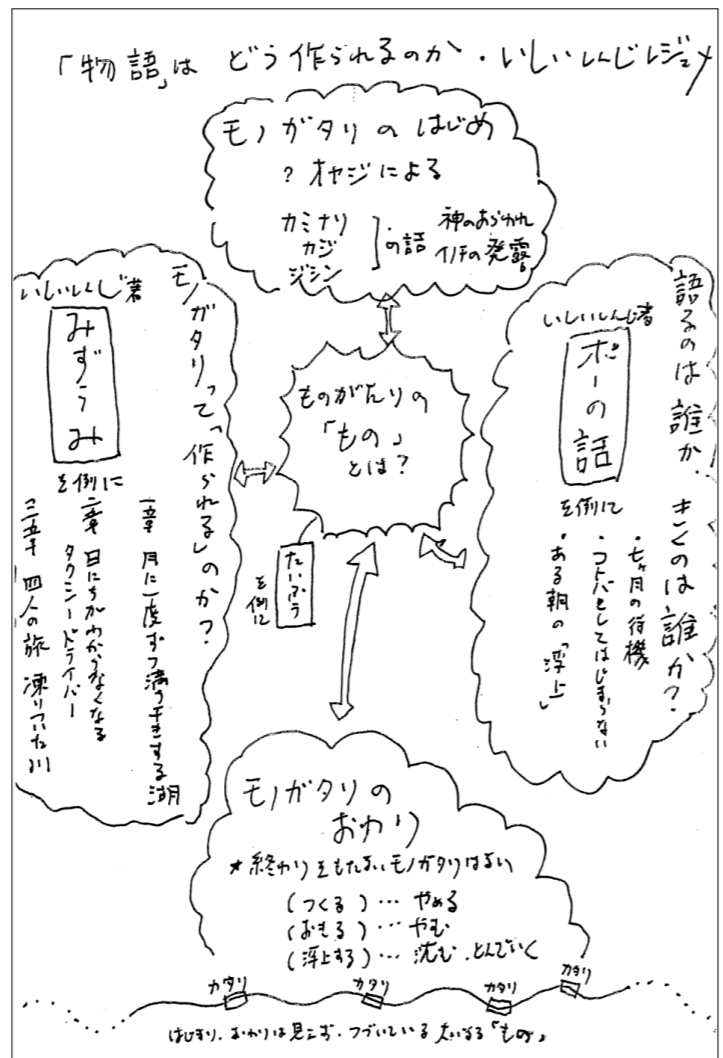 「物語」は どう作られるのか・いしいしんじレジュメ
モノガタリ の はじめ
? オヤジ による
カミナリ
カジ
ジシン
の話
神のあらわれ
イノチの発露
語るのは誰か. きくのは誰か?
いしいしんじ著
ポーの話
を例に
・七ヶ月の待機
・コトバとしてはじまらない
・ある朝の「浮上」
ものがたりの
「もの」
とは?
たいふう
を例に
モノガタリって「作られる」のか?
いしいしんじ著
みずうみ
を例に
一章 月に一度ずつ満ち干きする湖
二章 日にちがわからなくなる
タクシードライバー
三章 四人の旅 凍りついた川
モノガタリの
おわり
*終わりをもたないモノガタリはない
(つくる)… やめる
(おきる)… やむ
(浮上する)… 沈む.とんでいく
カタリ
カタリ
カタリ
カタリ
はじまり.おわりは見えず.つづいている大いなる「もの」